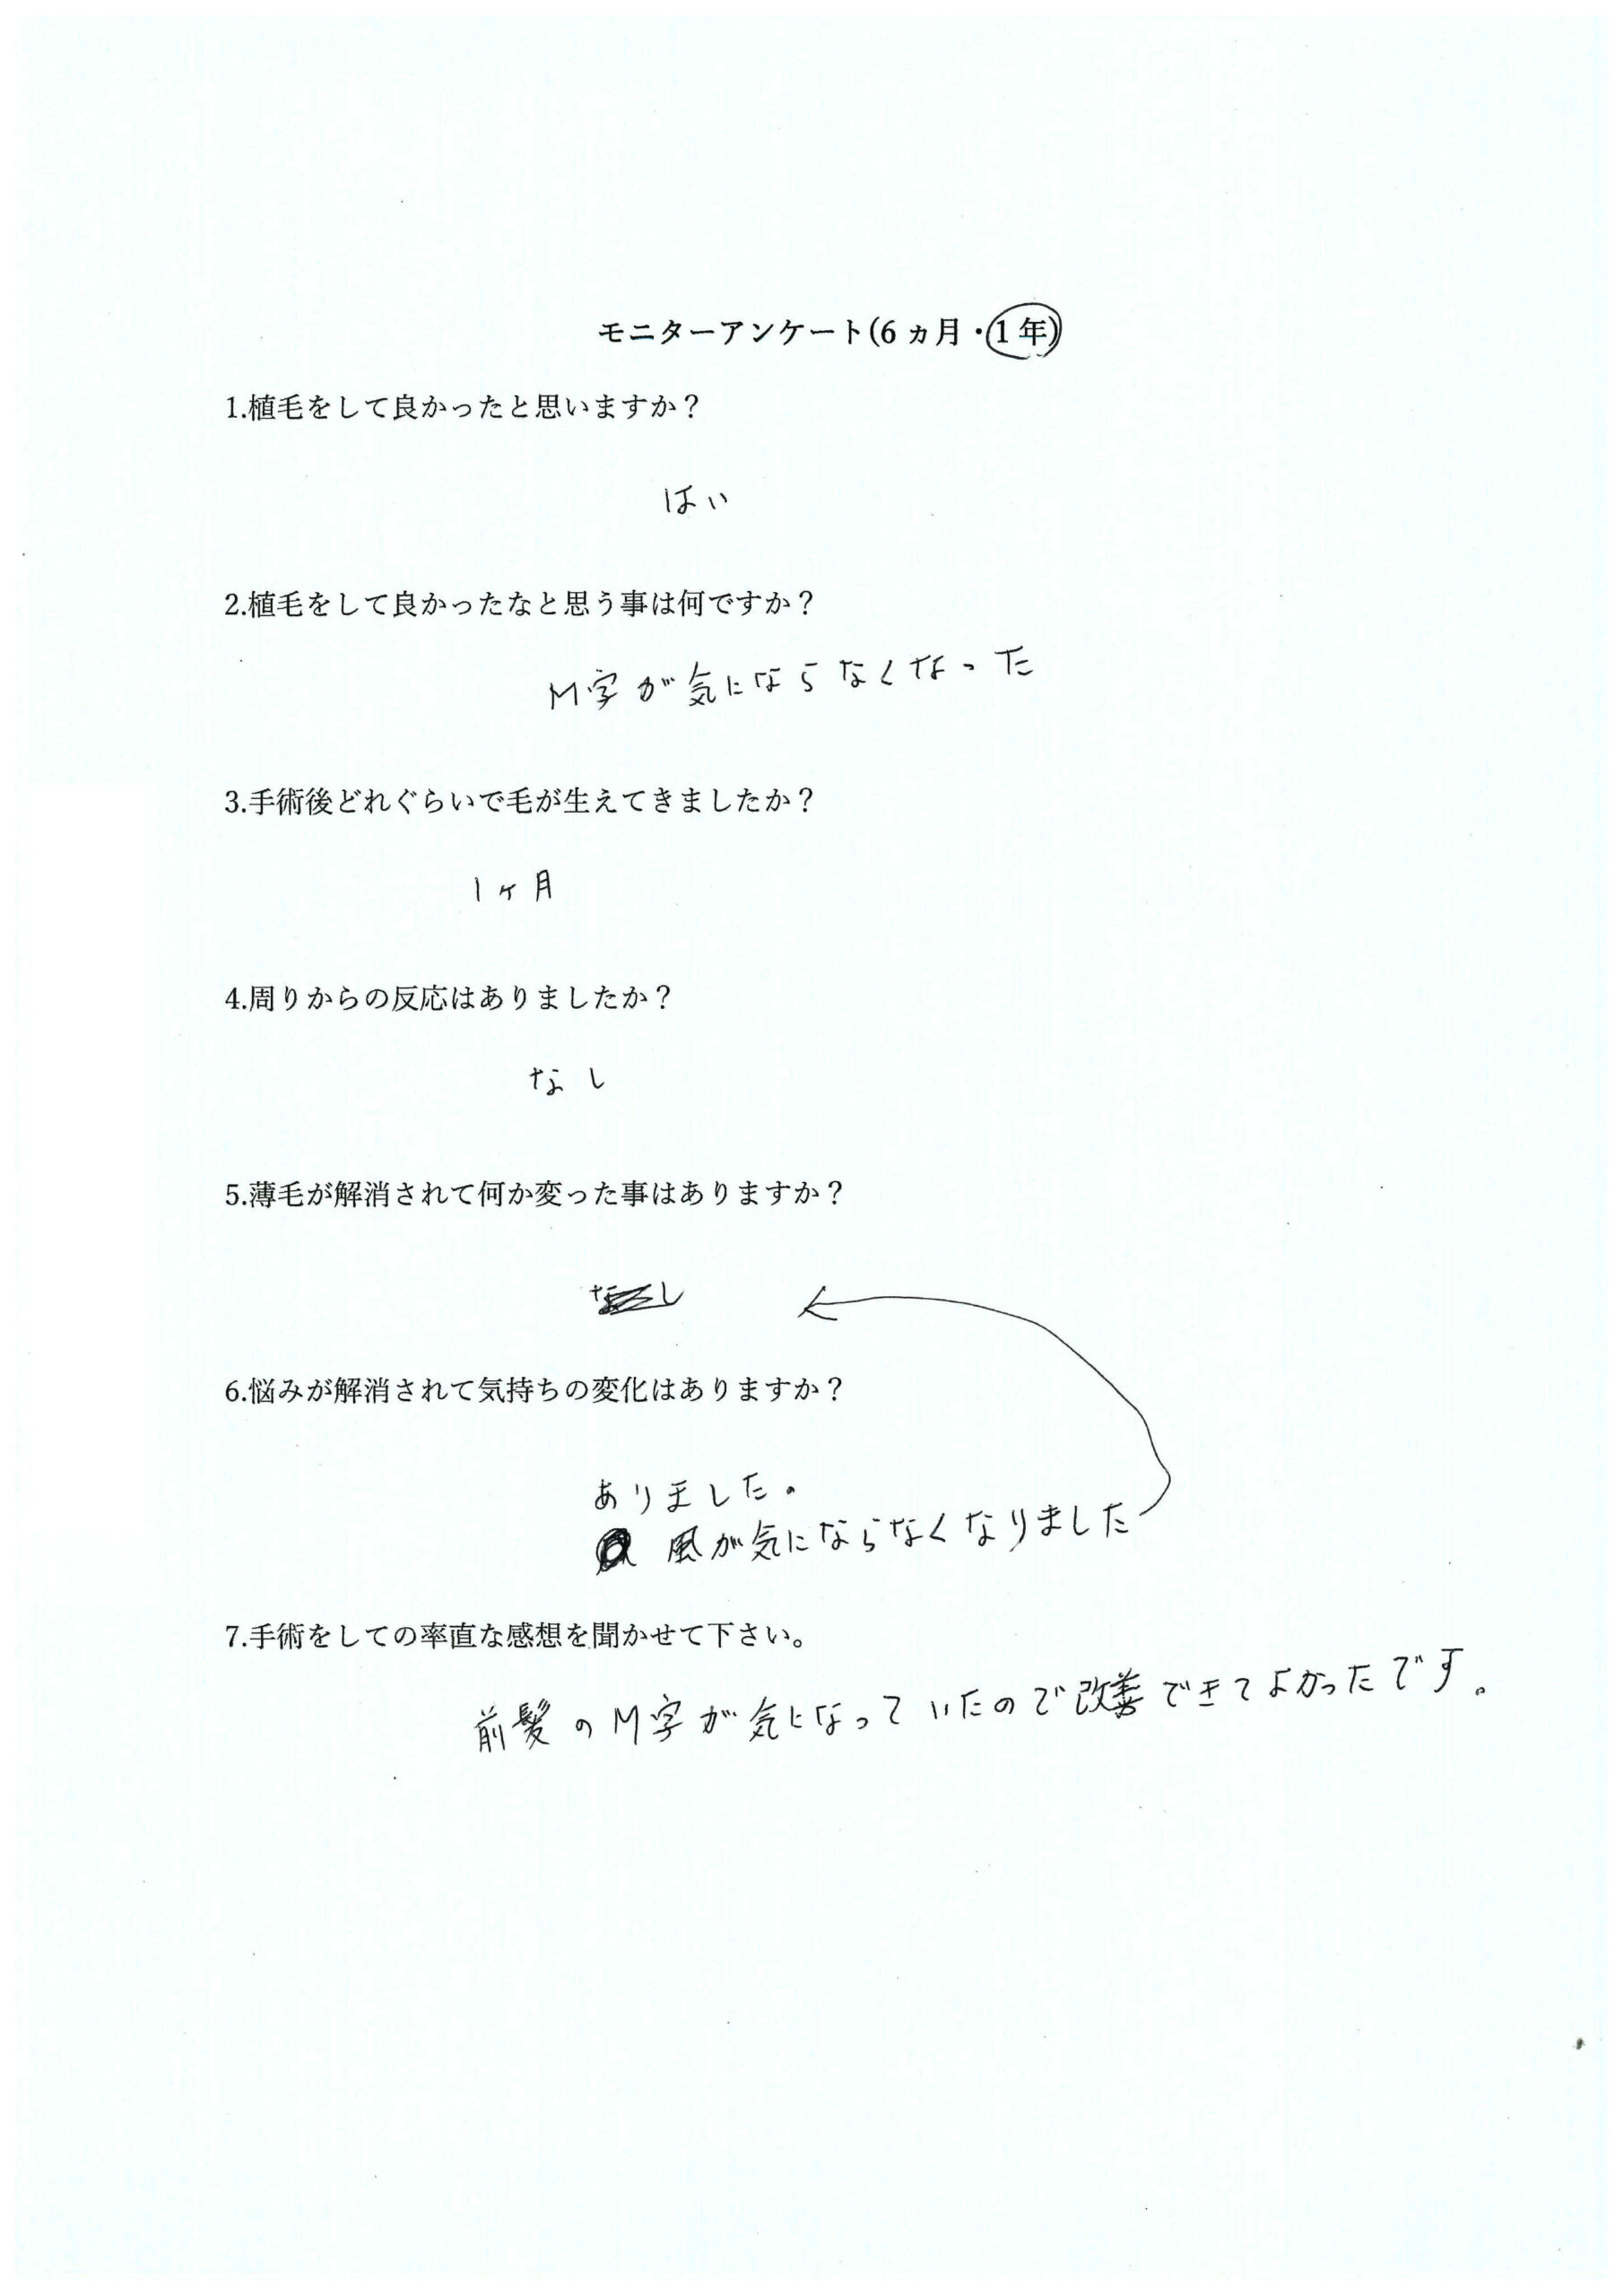 モニターアンケート(6 ヵ月・1 年)
1.植毛をして良かったと思いますか？
はい
2.植毛をして良かったなと思う事は何ですか？
M字が気にならなくなった
3.手術後どれぐらいで毛が生えてきましたか？
1ヶ月
4.周りからの反応はありましたか？
なし
5.薄毛が解消されて何か変った事はありますか？
なし
6.悩みが解消されて気持ちの変化はありますか？
ありました。
風が気にならなくなりました
7.手術をしての率直な感想を聞かせて下さい。
前髪のM字が気になっていたので改善できてよかったです。